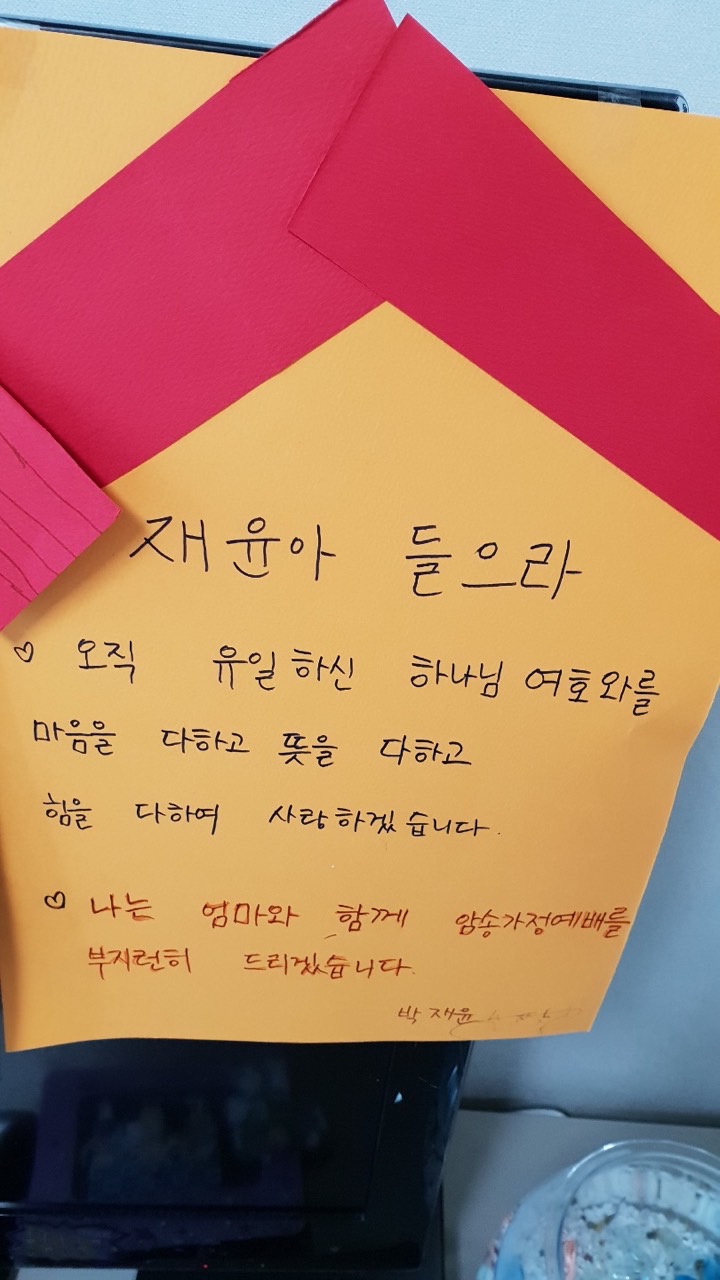 재윤아 들으라
♡ 오직 유일하신 하나님 여호와를
마음을 다하고 뜻을 다하고
힘을 다하여 사랑하겠습니다.
♡ 나는 엄마와 함께 암송가정예배를
부지런히 드리겠습니다.
박재윤